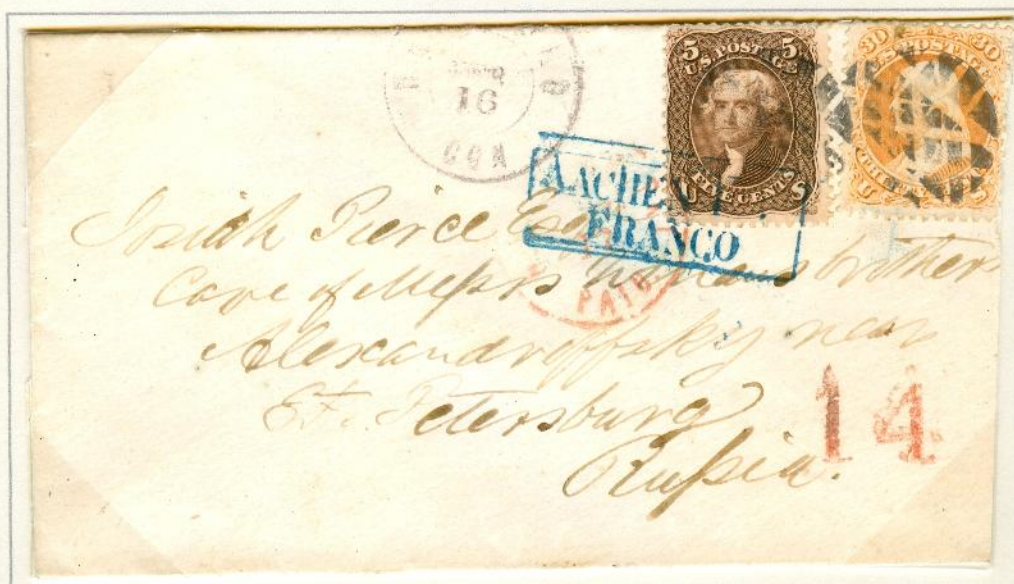 5 5
U.S. POSTAGE
FIVE CENTS
U S
30 30
U.S. POSTAGE
16
CON
AACHEN
FRANCO
PAID
Josiah Pierce Esq
Care of Messrs Winans brothers
Alexandroffsky near
St. Petersburg
Russia.
14